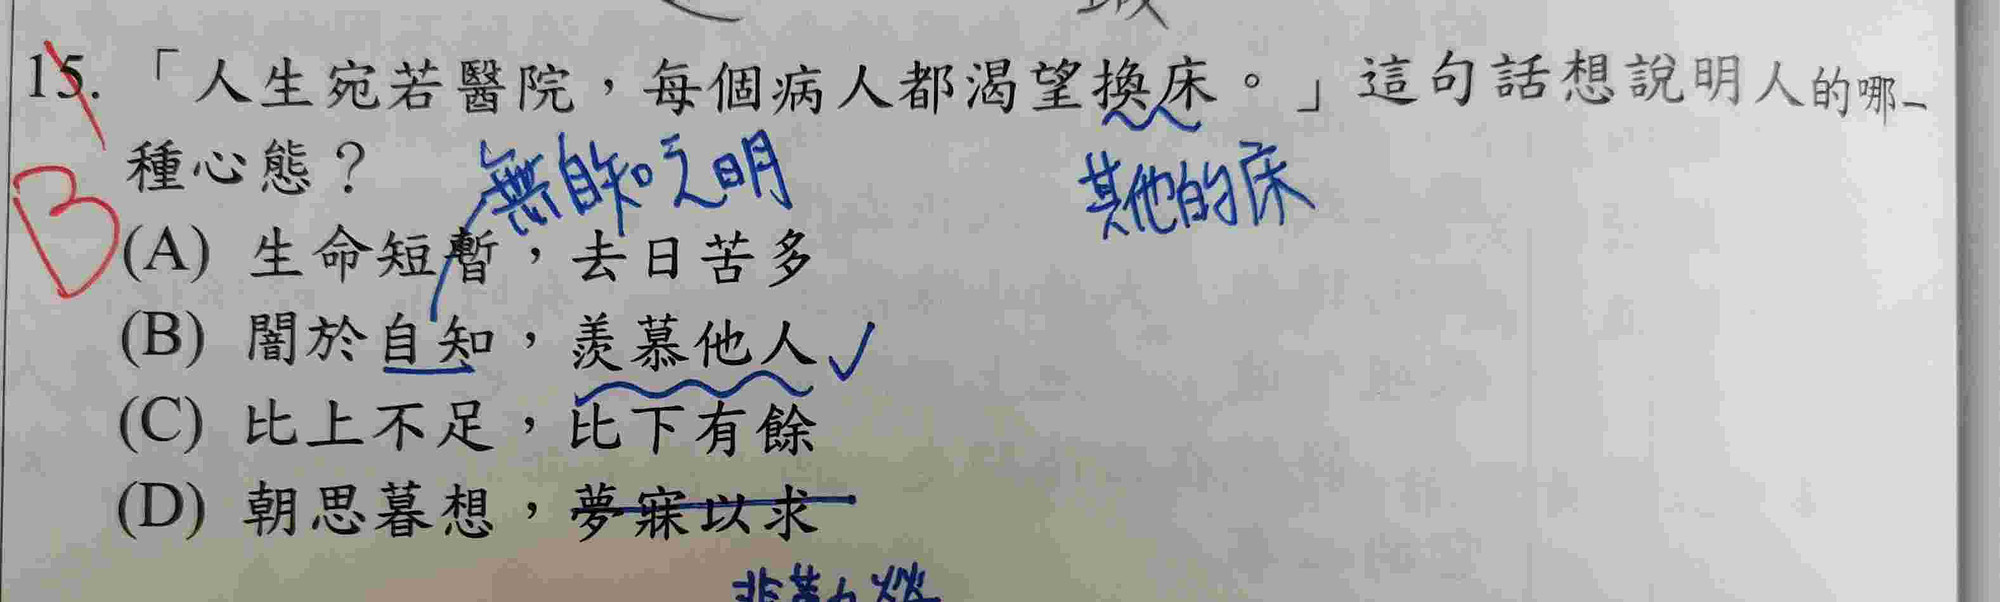 15. 「人生宛若醫院，每個病人都渴望換床。」這句話想說明人的哪一
種心態？
無自知之明
其他的床
B
(A) 生命短暫，去日苦多
(B) 闇於自知，羨慕他人✓
(C) 比上不足，比下有餘
(D) 朝思暮想，夢寐以求